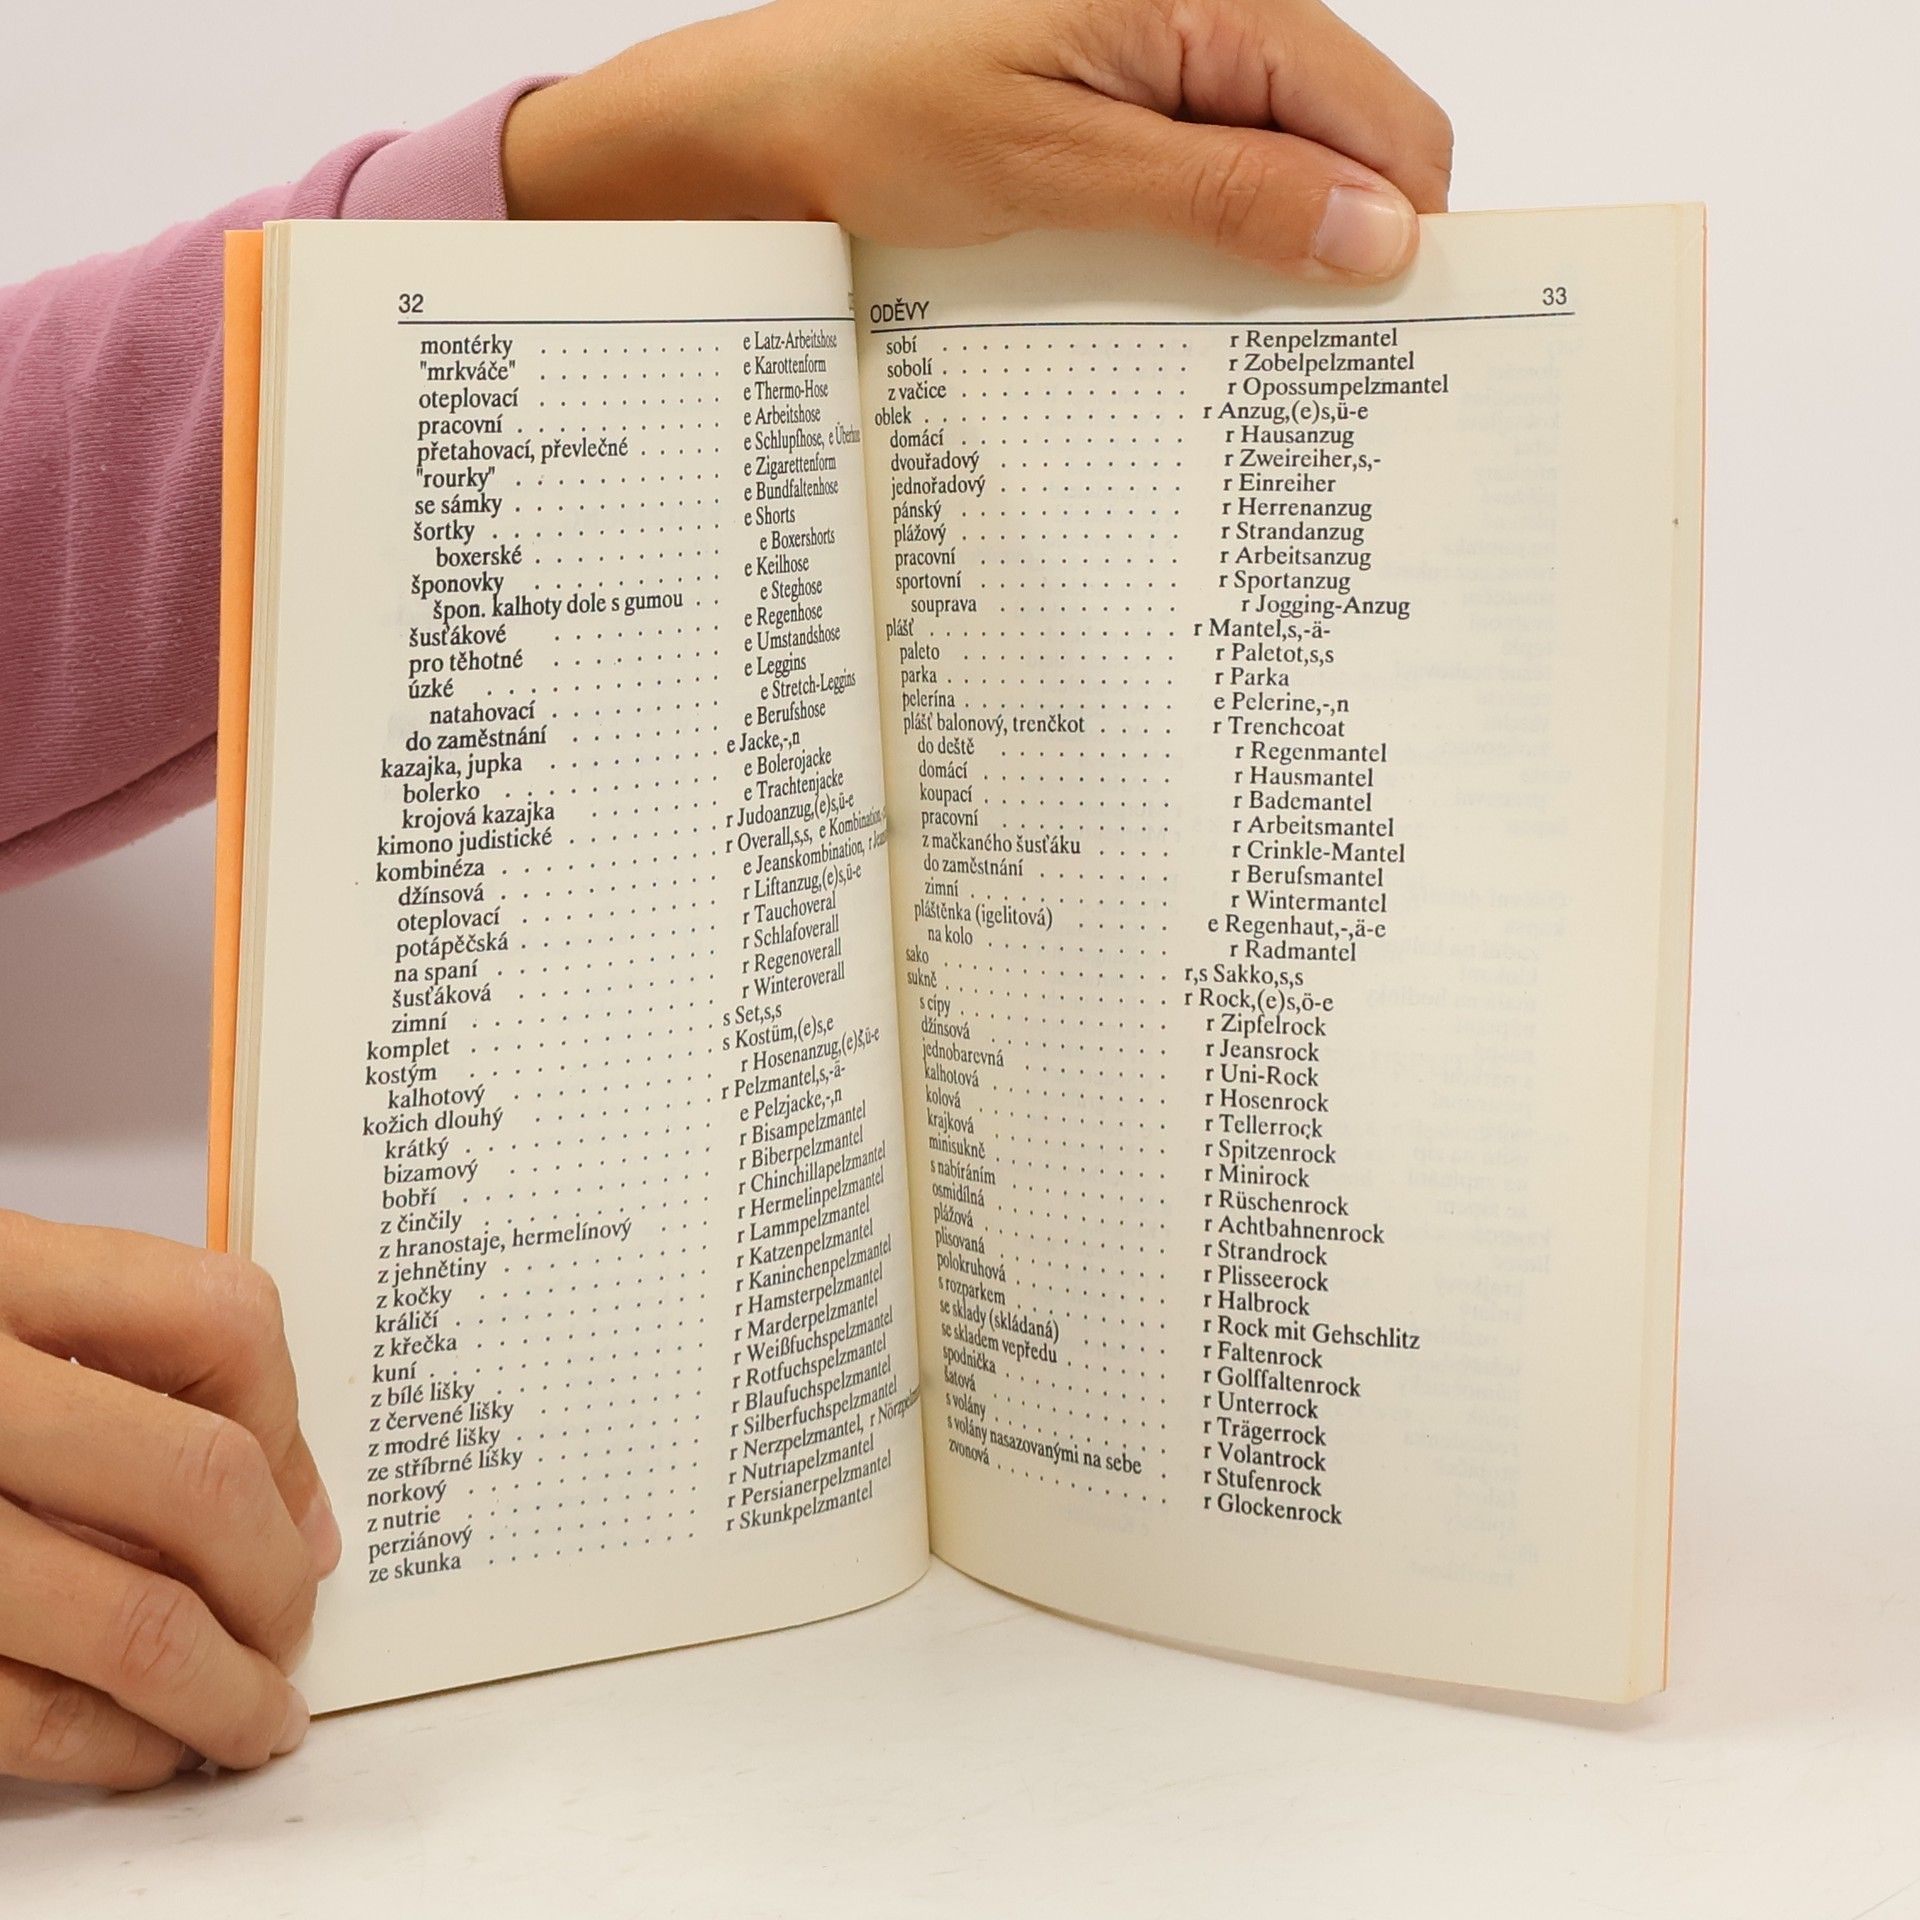 32
montérky . . . . . . . . . . e Latz-Arbeitshose
"mrkváče" . . . . . . . . . . e Karottenform
oteplovací . . . . . . . . . . e Thermo-Hose
pracovní . . . . . . . . . . . e Arbeitshose
přetahovací, převlečné . . . . . e Schlupfhose, e
"rourky" . . . . . . . . . . . e Zigarettenform
se sámky . . . . . . . . . . . e Bundfaltenhose
šortky . . . . . . . . . . . . e Shorts
boxerské . . . . . . . . . . e Boxershorts
šponovky . . . . . . . . . . e Keilhose
špon. kalhoty dole s gumou . . e Steghose
šusťákové . . . . . . . . . e Regenhose
pro těhotné . . . . . . . . . e Umstandshose
úzké . . . . . . . . . . . . e Leggins
natahovací . . . . . . . . . e Stretch-Leggins
do zaměstnání . . . . . . . . e Berufshose
kazajka, jupka . . . . . . . . . e Jacke,-,n
bolerko . . . . . . . . . . . e Bolerojacke
krojová kazajka . . . . . . . e Trachtenjacke
kimono judistické . . . . . . . . r Judoanzug,(e)s,ü-e
kombinéza . . . . . . . . . . . r Overall,s,s, e Kombination,
džínsová . . . . . . . . . . . e Jeanskombination, r
oteplovací . . . . . . . . . . r Liftanzug,(e)s,ü-e
potápěčská . . . . . . . . . . r Tauchoveral
na spaní . . . . . . . . . . . r Schlafoverall
šusťáková . . . . . . . . . . r Regenoverall
zimní . . . . . . . . . . . . r Winteroverall
komplet . . . . . . . . . . . . s Set,s,s
kostým . . . . . . . . . . . . s Kostüm,(e)s,e
kalhotový . . . . . . . . . . r Hosenanzug,(e)s,ü-e
kožich dlouhý . . . . . . . . . r Pelzmantel,s,-ä-
krátký . . . . . . . . . . . . e Pelzjacke,-,n
bizamový . . . . . . . . . . r Bisampelzmantel
bobří . . . . . . . . . . . . r Biberpelzmantel
z činčily . . . . . . . . . . . r Chinchillapelzmantel
z hranostaje, hermelínový . . . r Hermelinpelzmantel
z jehnětiny . . . . . . . . . . r Lammpelzmantel
z kočky . . . . . . . . . . . r Katzenpelzmantel
králičí . . . . . . . . . . . . r Kaninchenpelzmantel
z křečka . . . . . . . . . . . r Hamsterpelzmantel
kuní . . . . . . . . . . . . . r Marderpelzmantel
z bílé lišky . . . . . . . . . . r Weißfuchspelzmantel
z červené lišky . . . . . . . . r Rotfuchspelzmantel
z modré lišky . . . . . . . . . r Blaufuchspelzmantel
ze stříbrné lišky . . . . . . . . r Silberfuchspelzmantel
norkový . . . . . . . . . . . r Nerzpelzmantel, r
z nutrie . . . . . . . . . . . r Nutriapelzmantel
perziánový . . . . . . . . . . r Persianerpelzmantel
ze skunka . . . . . . . . . . r Skunkpelzmantel
ODĚVY 33
sobí . . . . . . . . . . . . r Renpelzmantel
sobolí . . . . . . . . . . . . r Zobelpelzmantel
z vačice . . . . . . . . . . . r Opossumpelzmantel
oblek . . . . . . . . . . . . . r Anzug,(e)s,ü-e
domácí . . . . . . . . . . . r Hausanzug
dvouřadový . . . . . . . . . r Zweireiher,s,-
jednořadový . . . . . . . . . r Einreiher
pánský . . . . . . . . . . . r Herrenanzug
plážový . . . . . . . . . . . r Strandanzug
pracovní . . . . . . . . . . r Arbeitsanzug
sportovní . . . . . . . . . . r Sportanzug
souprava . . . . . . . . . r Jogging-Anzug
plášť . . . . . . . . . . . . . r Mantel,s,-ä-
paleto . . . . . . . . . . . r Paletot,s,s
parka . . . . . . . . . . . . r Parka
pelerína . . . . . . . . . . . e Pelerine,-,n
plášť balonový, trenčkot . . . . r Trenchcoat
do deště . . . . . . . . . . r Regenmantel
domácí . . . . . . . . . . r Hausmantel
koupací . . . . . . . . . . r Bademantel
pracovní . . . . . . . . . . r Arbeitsmantel
z mačkaného šusťáku . . . . r Crinkle-Mantel
do zaměstnání . . . . . . . r Berufsmantel
zimní . . . . . . . . . . . r Wintermantel
pláštěnka (igelitová) . . . . . e Regenhaut,-,ä-e
na kolo . . . . . . . . . . r Radmantel
sako . . . . . . . . . . . . . r,s Sakko,s,s
sukně . . . . . . . . . . . . . r Rock,(e)s,ö-e
s cípy . . . . . . . . . . . r Zipfelrock
džínsová . . . . . . . . . . r Jeansrock
jednobarevná . . . . . . . . r Uni-Rock
kalhotová . . . . . . . . . . r Hosenrock
kolová . . . . . . . . . . . r Tellerrock
krajková . . . . . . . . . . r Spitzenrock
minisukně . . . . . . . . . . r Minirock
s nabíráním . . . . . . . . . r Rüschenrock
osmidílná . . . . . . . . . . r Achtbahnenrock
plážová . . . . . . . . . . . r Strandrock
plisovaná . . . . . . . . . . r Plisseerock
polokruhová . . . . . . . . . r Halbrock
s rozparkem . . . . . . . . . r Rock mit Gehschlitz
se sklady (skládaná) . . . . . r Faltenrock
se skladem vepředu . . . . . . r Golffaltenrock
spodnička . . . . . . . . . . r Unterrock
šatová . . . . . . . . . . . r Trägerrock
s volány . . . . . . . . . . r Volantrock
s volány nasazovanými na sebe . r Stufenrock
zvonová . . . . . . . . . . r Glockenrock